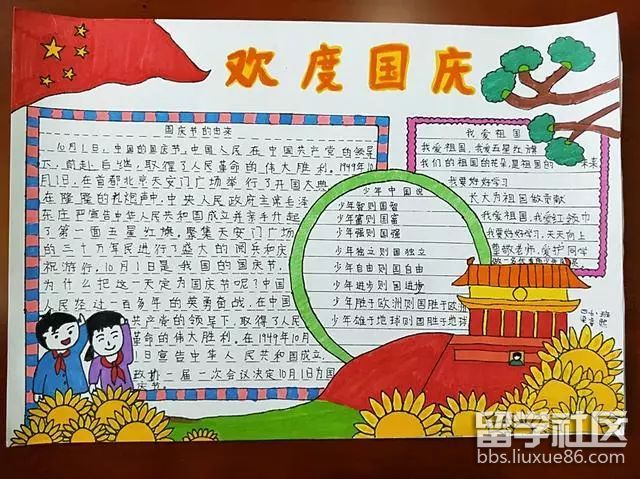 欢度国庆
国庆节的由来
10月1日,中国的国庆节,中国人民在中国共产党的领导
下,前赴后继,取得了人民革命的伟大胜利。1949年10
月1日,在首都北京天安门广场举行了开国大典,
在隆隆的礼炮声中,中央人民政府主席毛泽
东庄严宣告中华人民共和国成立并亲手升起
了第一面五星红旗。聚集天安门广场
的三十万军民进行了盛大的阅兵和庆
祝游行。10月1日是我国的国庆节。
为什么把这一天定为国庆节呢?中国
人民经过一百多年的英勇奋战,在中国
共产党的领导下,取得了人民
革命的伟大胜利。在1949年10月
1日宣告中华人民共和国成立。
政协一届一次会议决定10月1日为国
庆节。
少年中国说
少年智则国智
少年富则国富
少年强则国强
少年独立则国独立
少年自由则国自由
少年进步则国进步
少年胜于欧洲则国胜于欧洲
少年雄于地球则国胜于地球
我爱祖国
我爱祖国,我爱五星红旗
我们的祖国的花朵,是祖国的 未来
我要好好学习
长大为祖国做贡献
我爱祖国,我爱红领巾
我要好好学习,天天向上
尊敬老师,爱护同学
留学社区
bbs.liuxue86.com